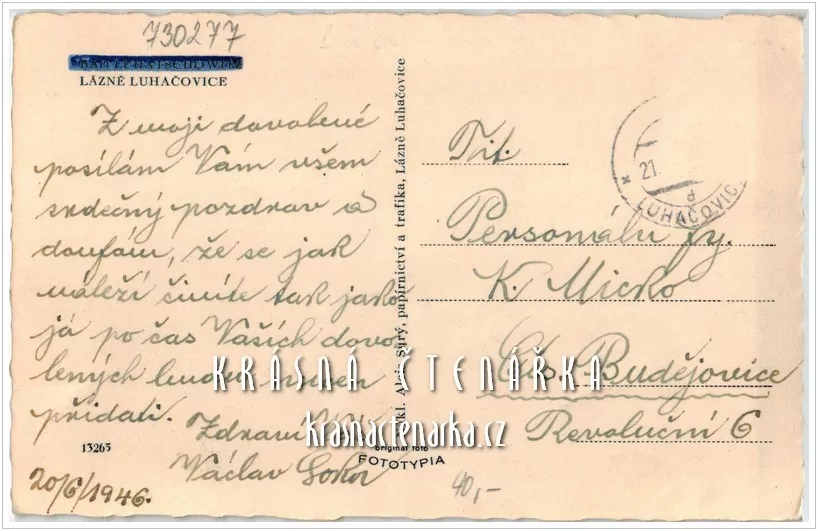 730277
LÁZNĚ LUHAČOVICE
Z moji dovolené
posílám Vám všem
srdečný pozdrav a
doufám, že se jak
náleží činíte tak jako
já po čas Vašich dovo-
lených budu muset
přidati.
Zdraví Vás
Václav
13263
20/6/1946.
Nakl. Alois Surý, papírnictví a trafika, Lázně Luhačovice
original foto
FOTOTYPIA
40,-
21.
LUHAČOVIC
d
Tit.
Personálu fy.
K. Micko
Čes. Budějovice
Revoluční 6
KRÁSNÁ ČTENÁŘKA
krasnactenarka.cz